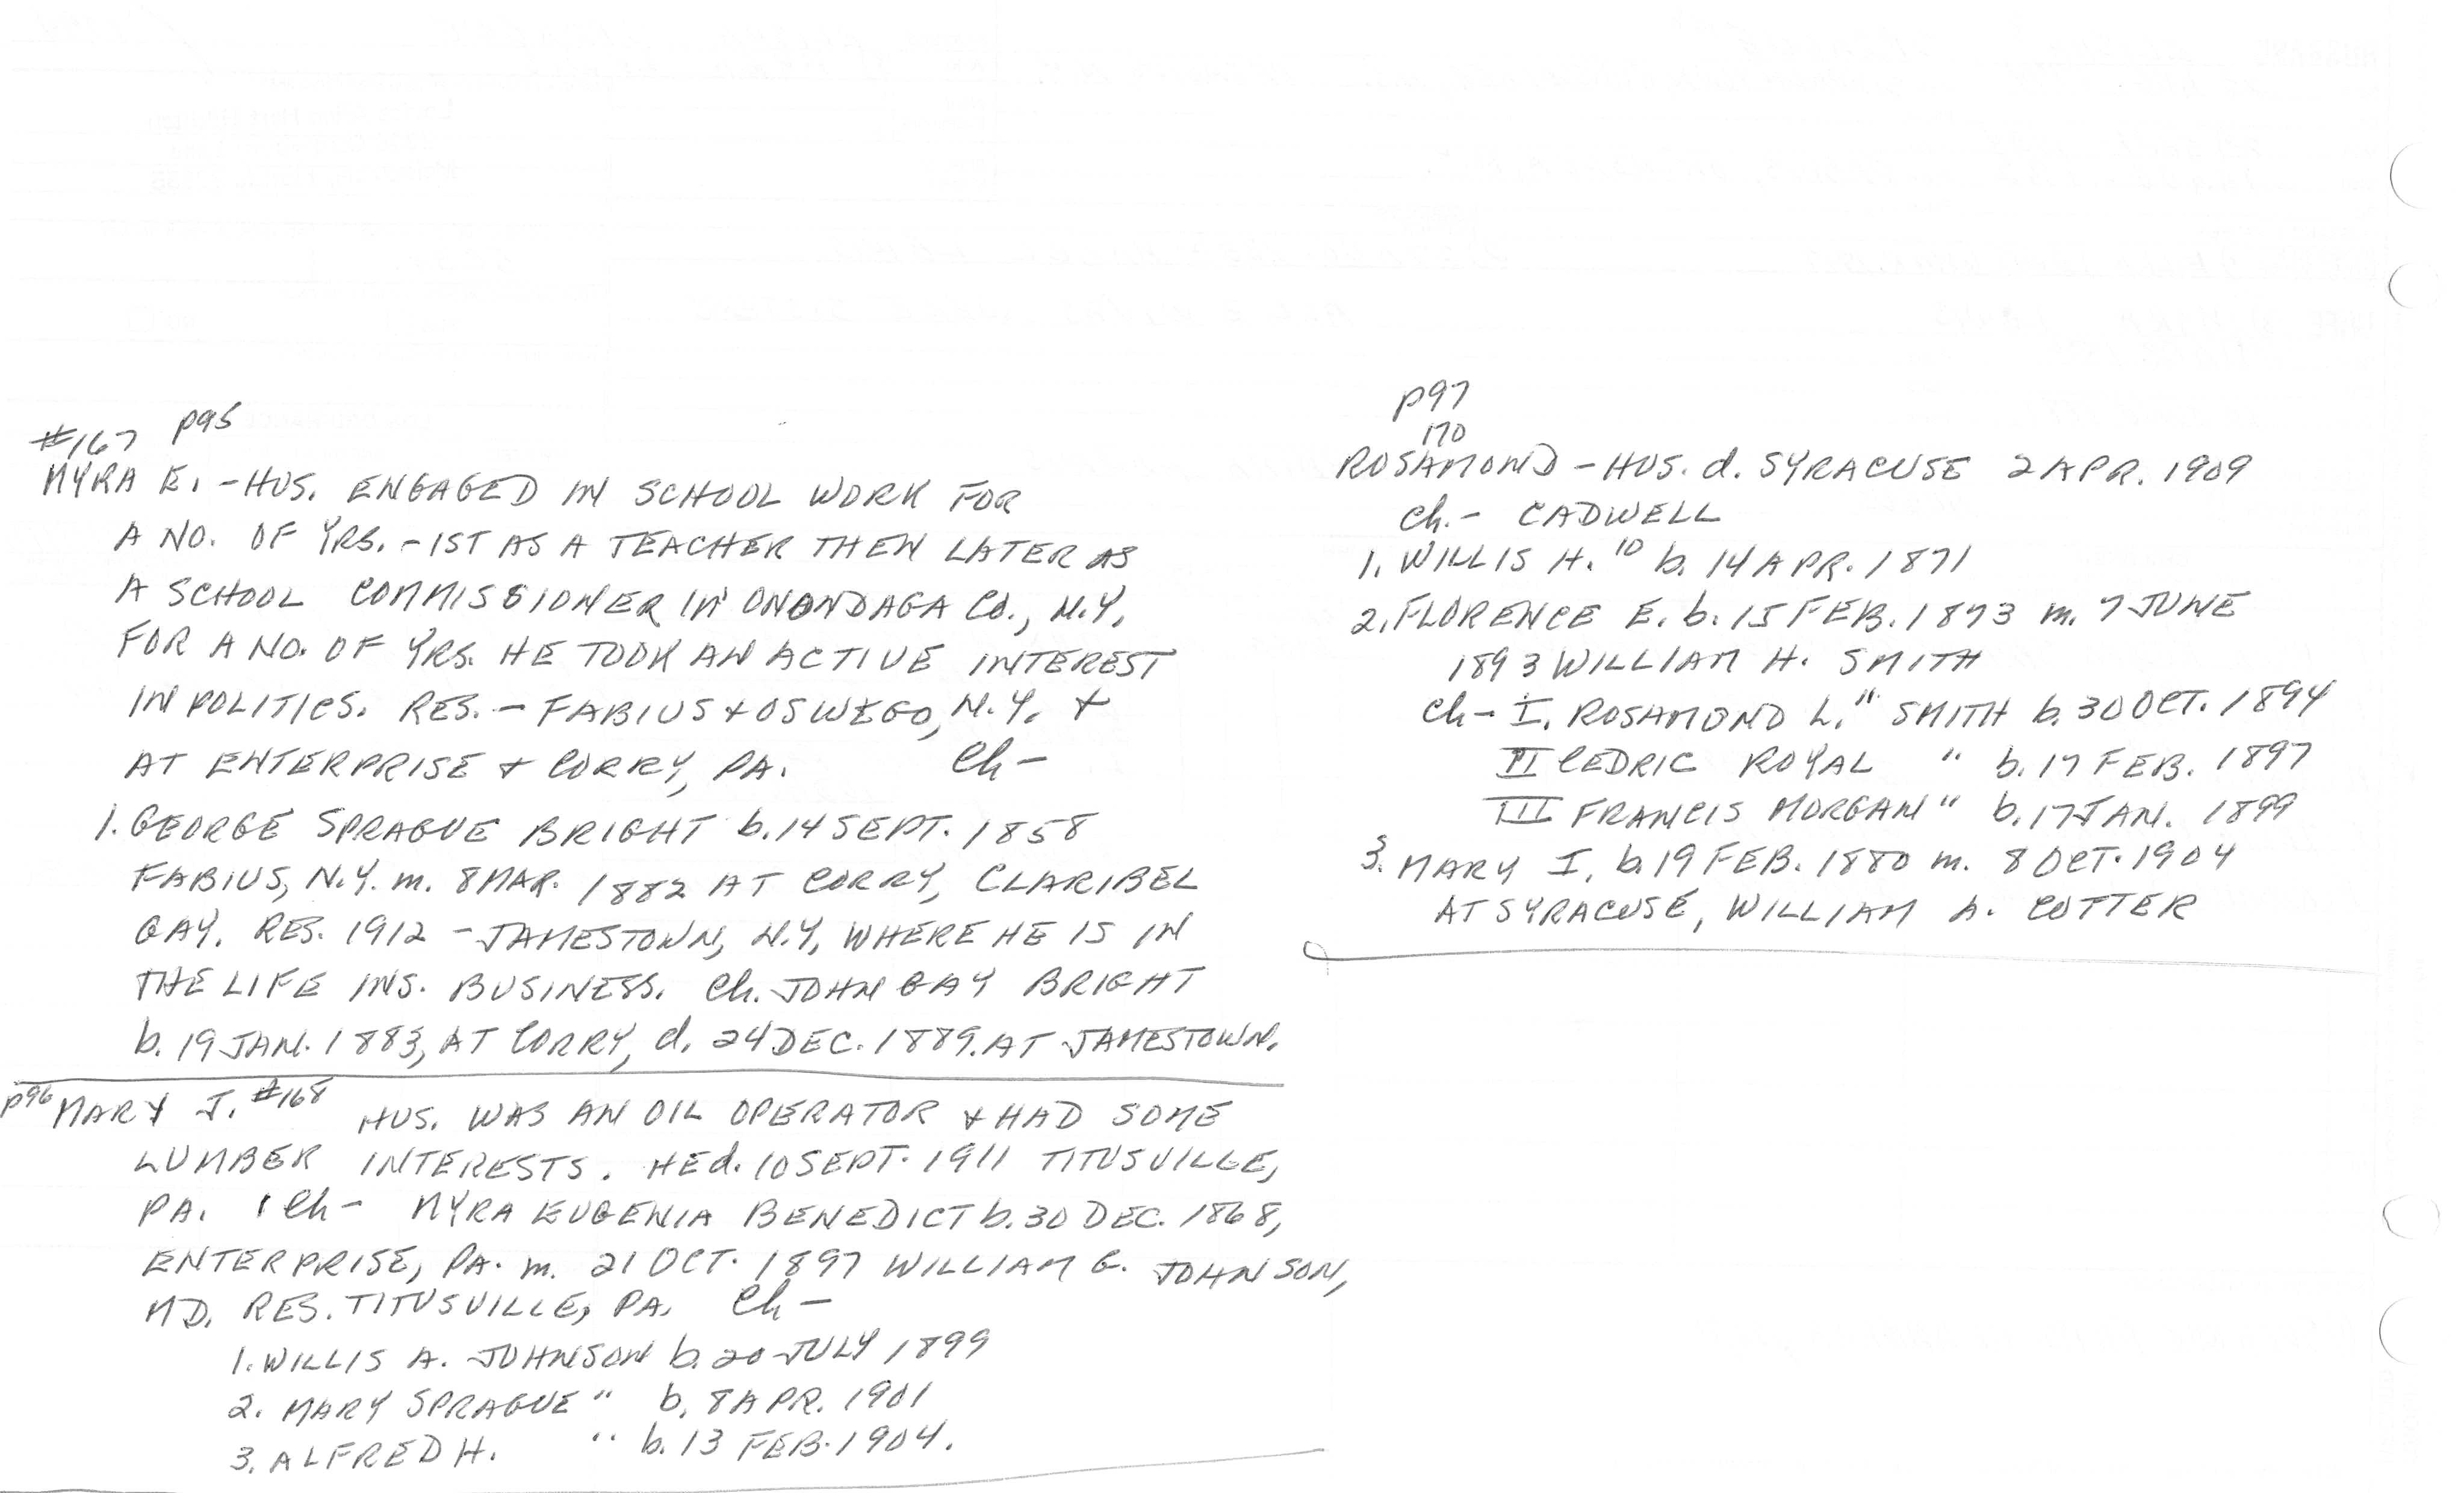 #167 p95
MYRA E. - HUS. ENGAGED IN SCHOOL WORK FOR
A NO. OF YRS. - 1ST AS A TEACHER THEN LATER AS
A SCHOOL COMMISSIONER IN ONONDAGA CO., N.Y.
FOR A NO. OF YRS. HE TOOK AN ACTIVE INTEREST
IN POLITICS. RES. - FABIUS & OSWEGO, N.Y. &
AT ENTERPRISE & CORRY, PA. Ch -
1. GEORGE SPRAGUE BRIGHT b. 14 SEPT. 1858
FABIUS, N.Y. m. 8 MAR. 1882 AT CORRY, CLARIBEL
GAY. RES. 1912 - JAMESTOWN, N.Y. WHERE HE IS IN
THE LIFE INS. BUSINESS. Ch. JOHN GAY BRIGHT
b. 19 JAN. 1883, AT CORRY, d. 24 DEC. 1889. AT JAMESTOWN.
p96 MARY J. #168 HUS. WAS AN OIL OPERATOR & HAD SOME
LUMBER INTERESTS. HE d. 10 SEPT. 1911 TITUSVILLE,
PA. 1 Ch - MYRA EUGENIA BENEDICT b. 30 DEC. 1868,
ENTERPRISE, PA. m. 21 OCT. 1897 WILLIAM G. JOHNSON,
MD. RES. TITUSVILLE, PA. Ch -
1. WILLIS A. JOHNSON b. 20 JULY 1899
2. MARY SPRAGUE " b. 8 APR. 1901
3. ALFRED H. " b. 13 FEB. 1904.
p97
170
ROSAMOND - HUS. d. SYRACUSE 2 APR. 1909
Ch. - CADWELL
1. WILLIS H. 10 b. 14 APR. 1871
2. FLORENCE E. b. 15 FEB. 1873 m. 7 JUNE
1893 WILLIAM H. SMITH
Ch - I. ROSAMOND L. 11 SMITH b. 30 OCT. 1894
II CEDRIC ROYAL " b. 17 FEB. 1897
III FRANCIS MORGAN " b. 17 JAN. 1899
3. MARY I. b. 19 FEB. 1880 m. 8 OCT. 1904
AT SYRACUSE, WILLIAM A. COTTER